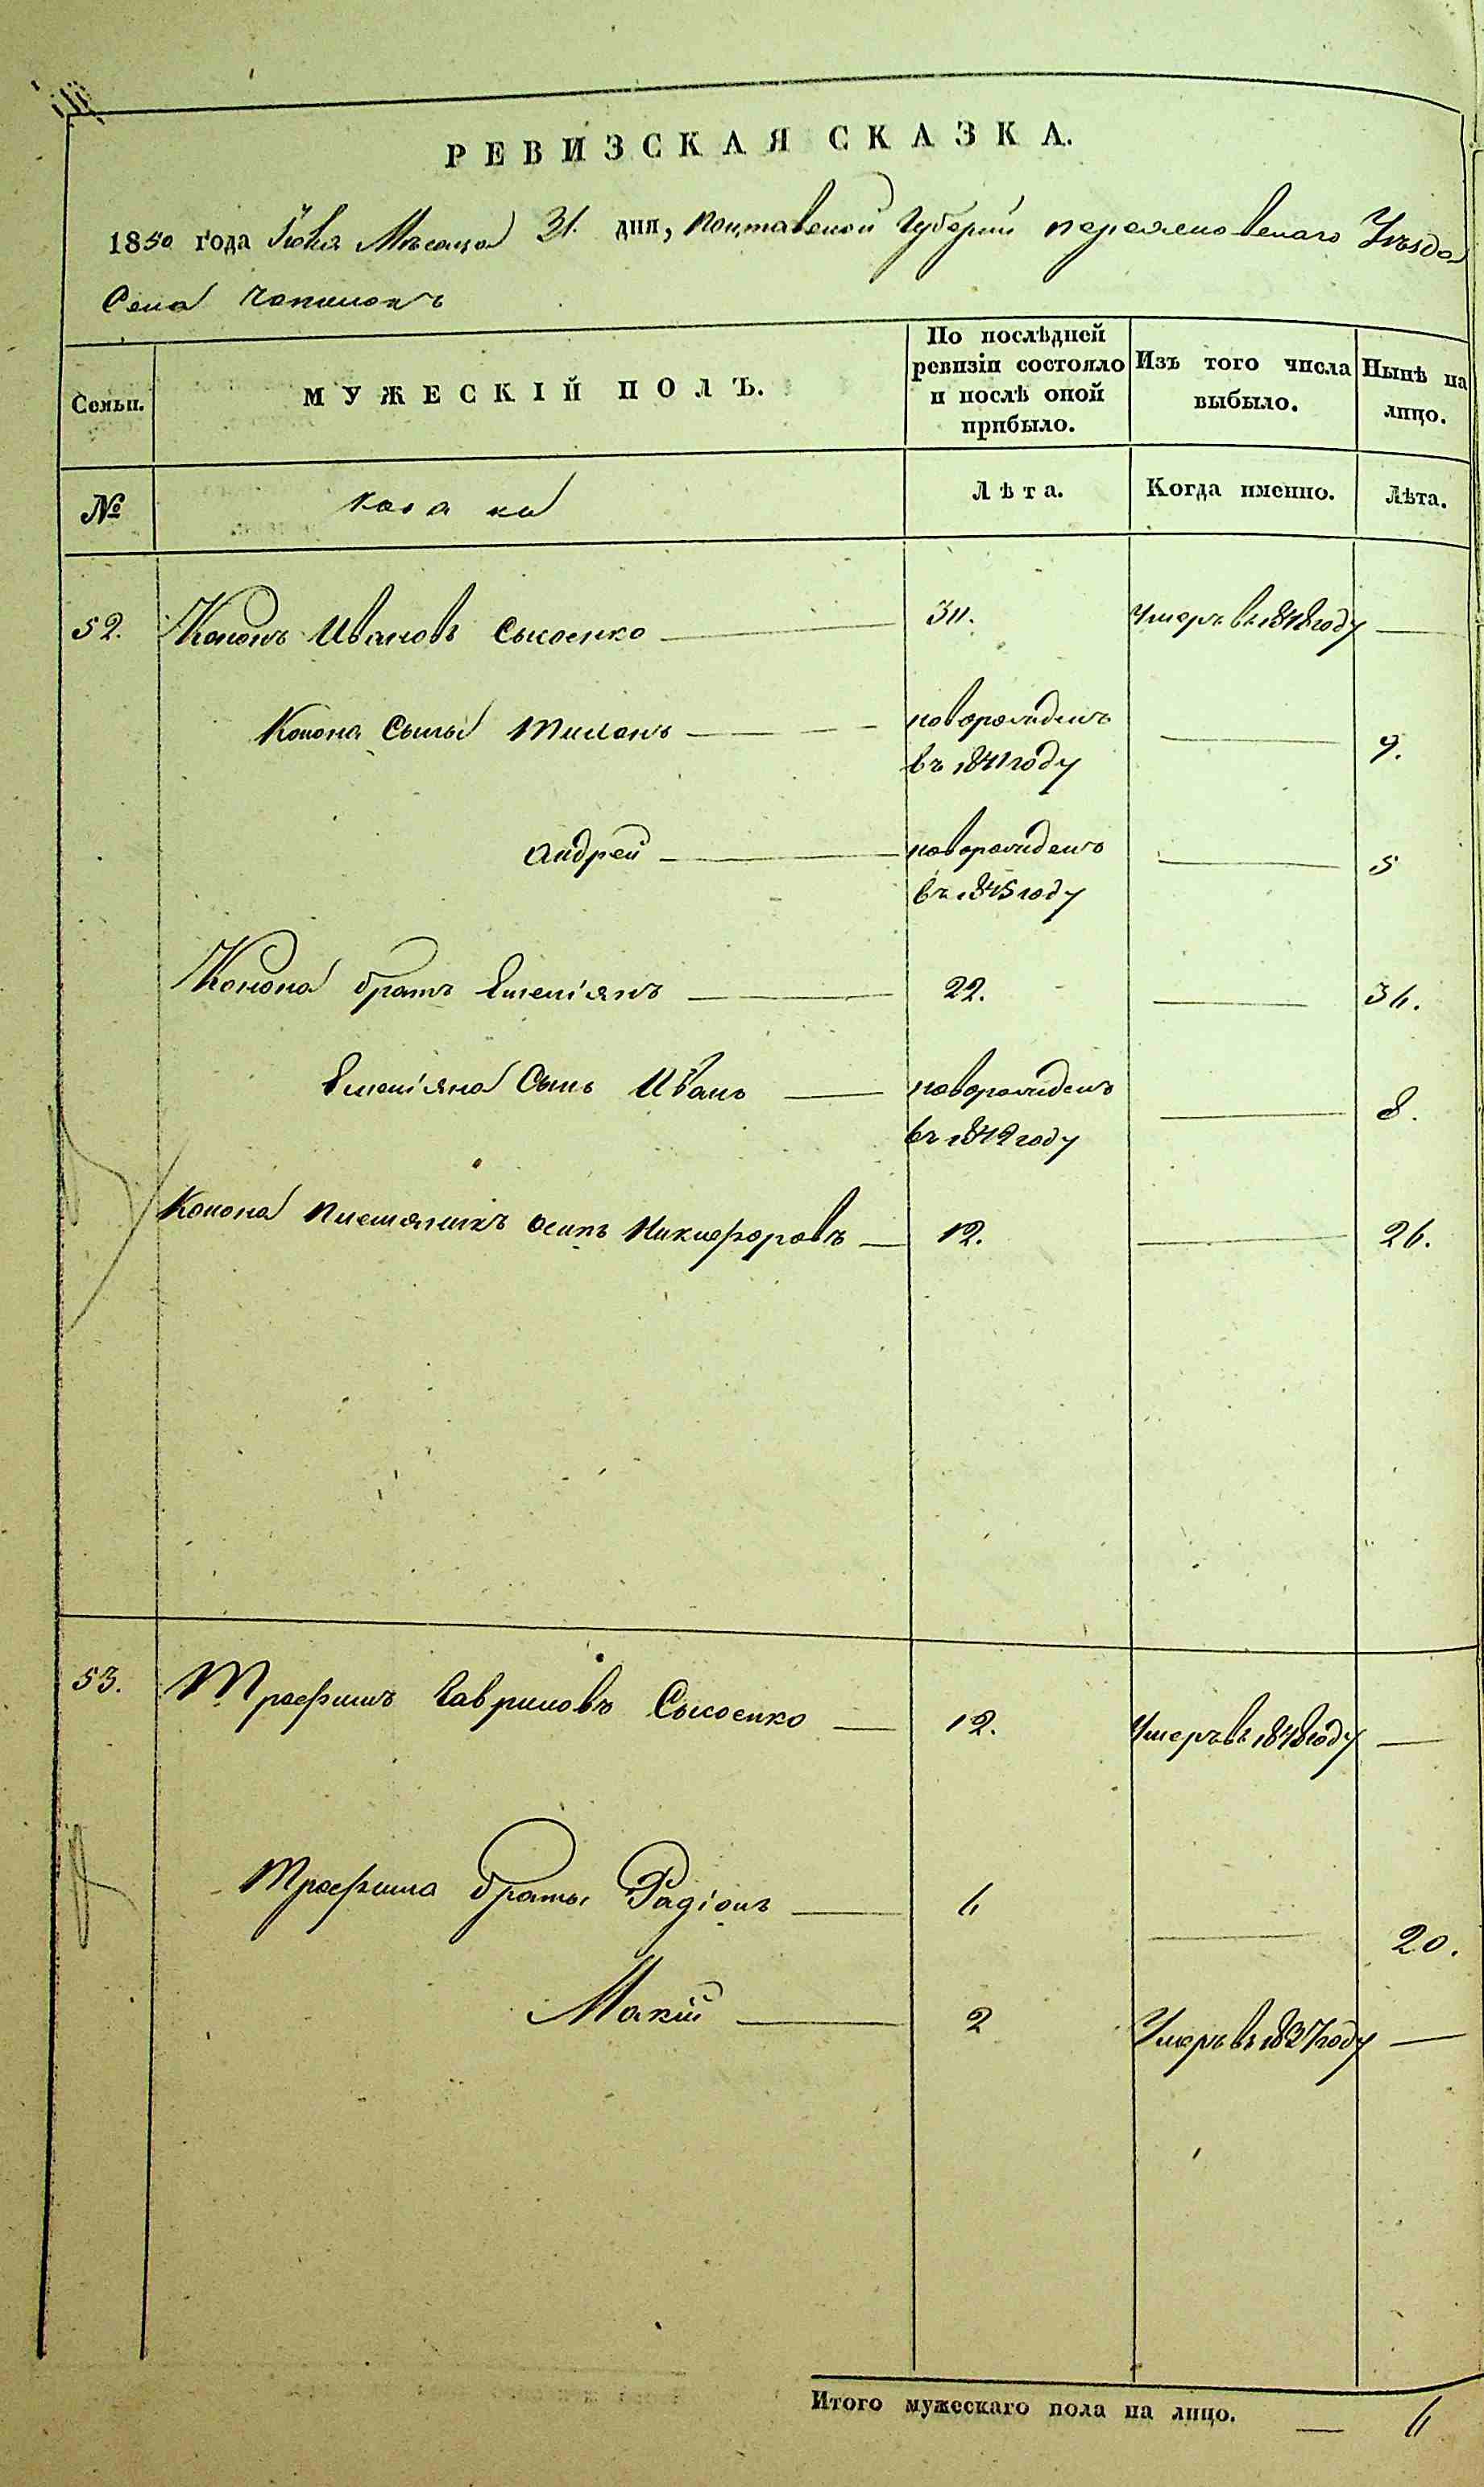 РЕВИЗСКАЯ СКАЗКА.
1850 года Июля Месяца 31. дня, Полтавской Губернии Переяславскаго Уезда
Села
По послѣдней ревизіи состояло и послѣ оной прибыло.
Изъ того числа выбыло.
Нынѣ на лицо.
Семьи.
МУЖЕСКІЙ ПОЛЪ.
№
Козаки
Лѣта.
Когда именно.
Лѣта.
52. Кононъ Ивановъ Сысоенко 3 Умеръ въ 1848 году
Конона Сыны новорожденъ
въ 1841 году 9.
Андрей новорожденъ 5
въ 1845 году
Конона братъ Емеліянъ 22. 36.
Емеліяна Сынъ Иванъ новорожденъ 8.
въ 1842 году
Конона племянникъ Осипъ Никифоровъ 12. 26.
53. Трофимъ Гавриловъ Сысоенко 12. Умеръ въ 1848 году
Трофима братья Радіонъ 6 20.
Мокій 2 Умеръ въ 1837 году
Итого мужескаго пола на лицо. 6